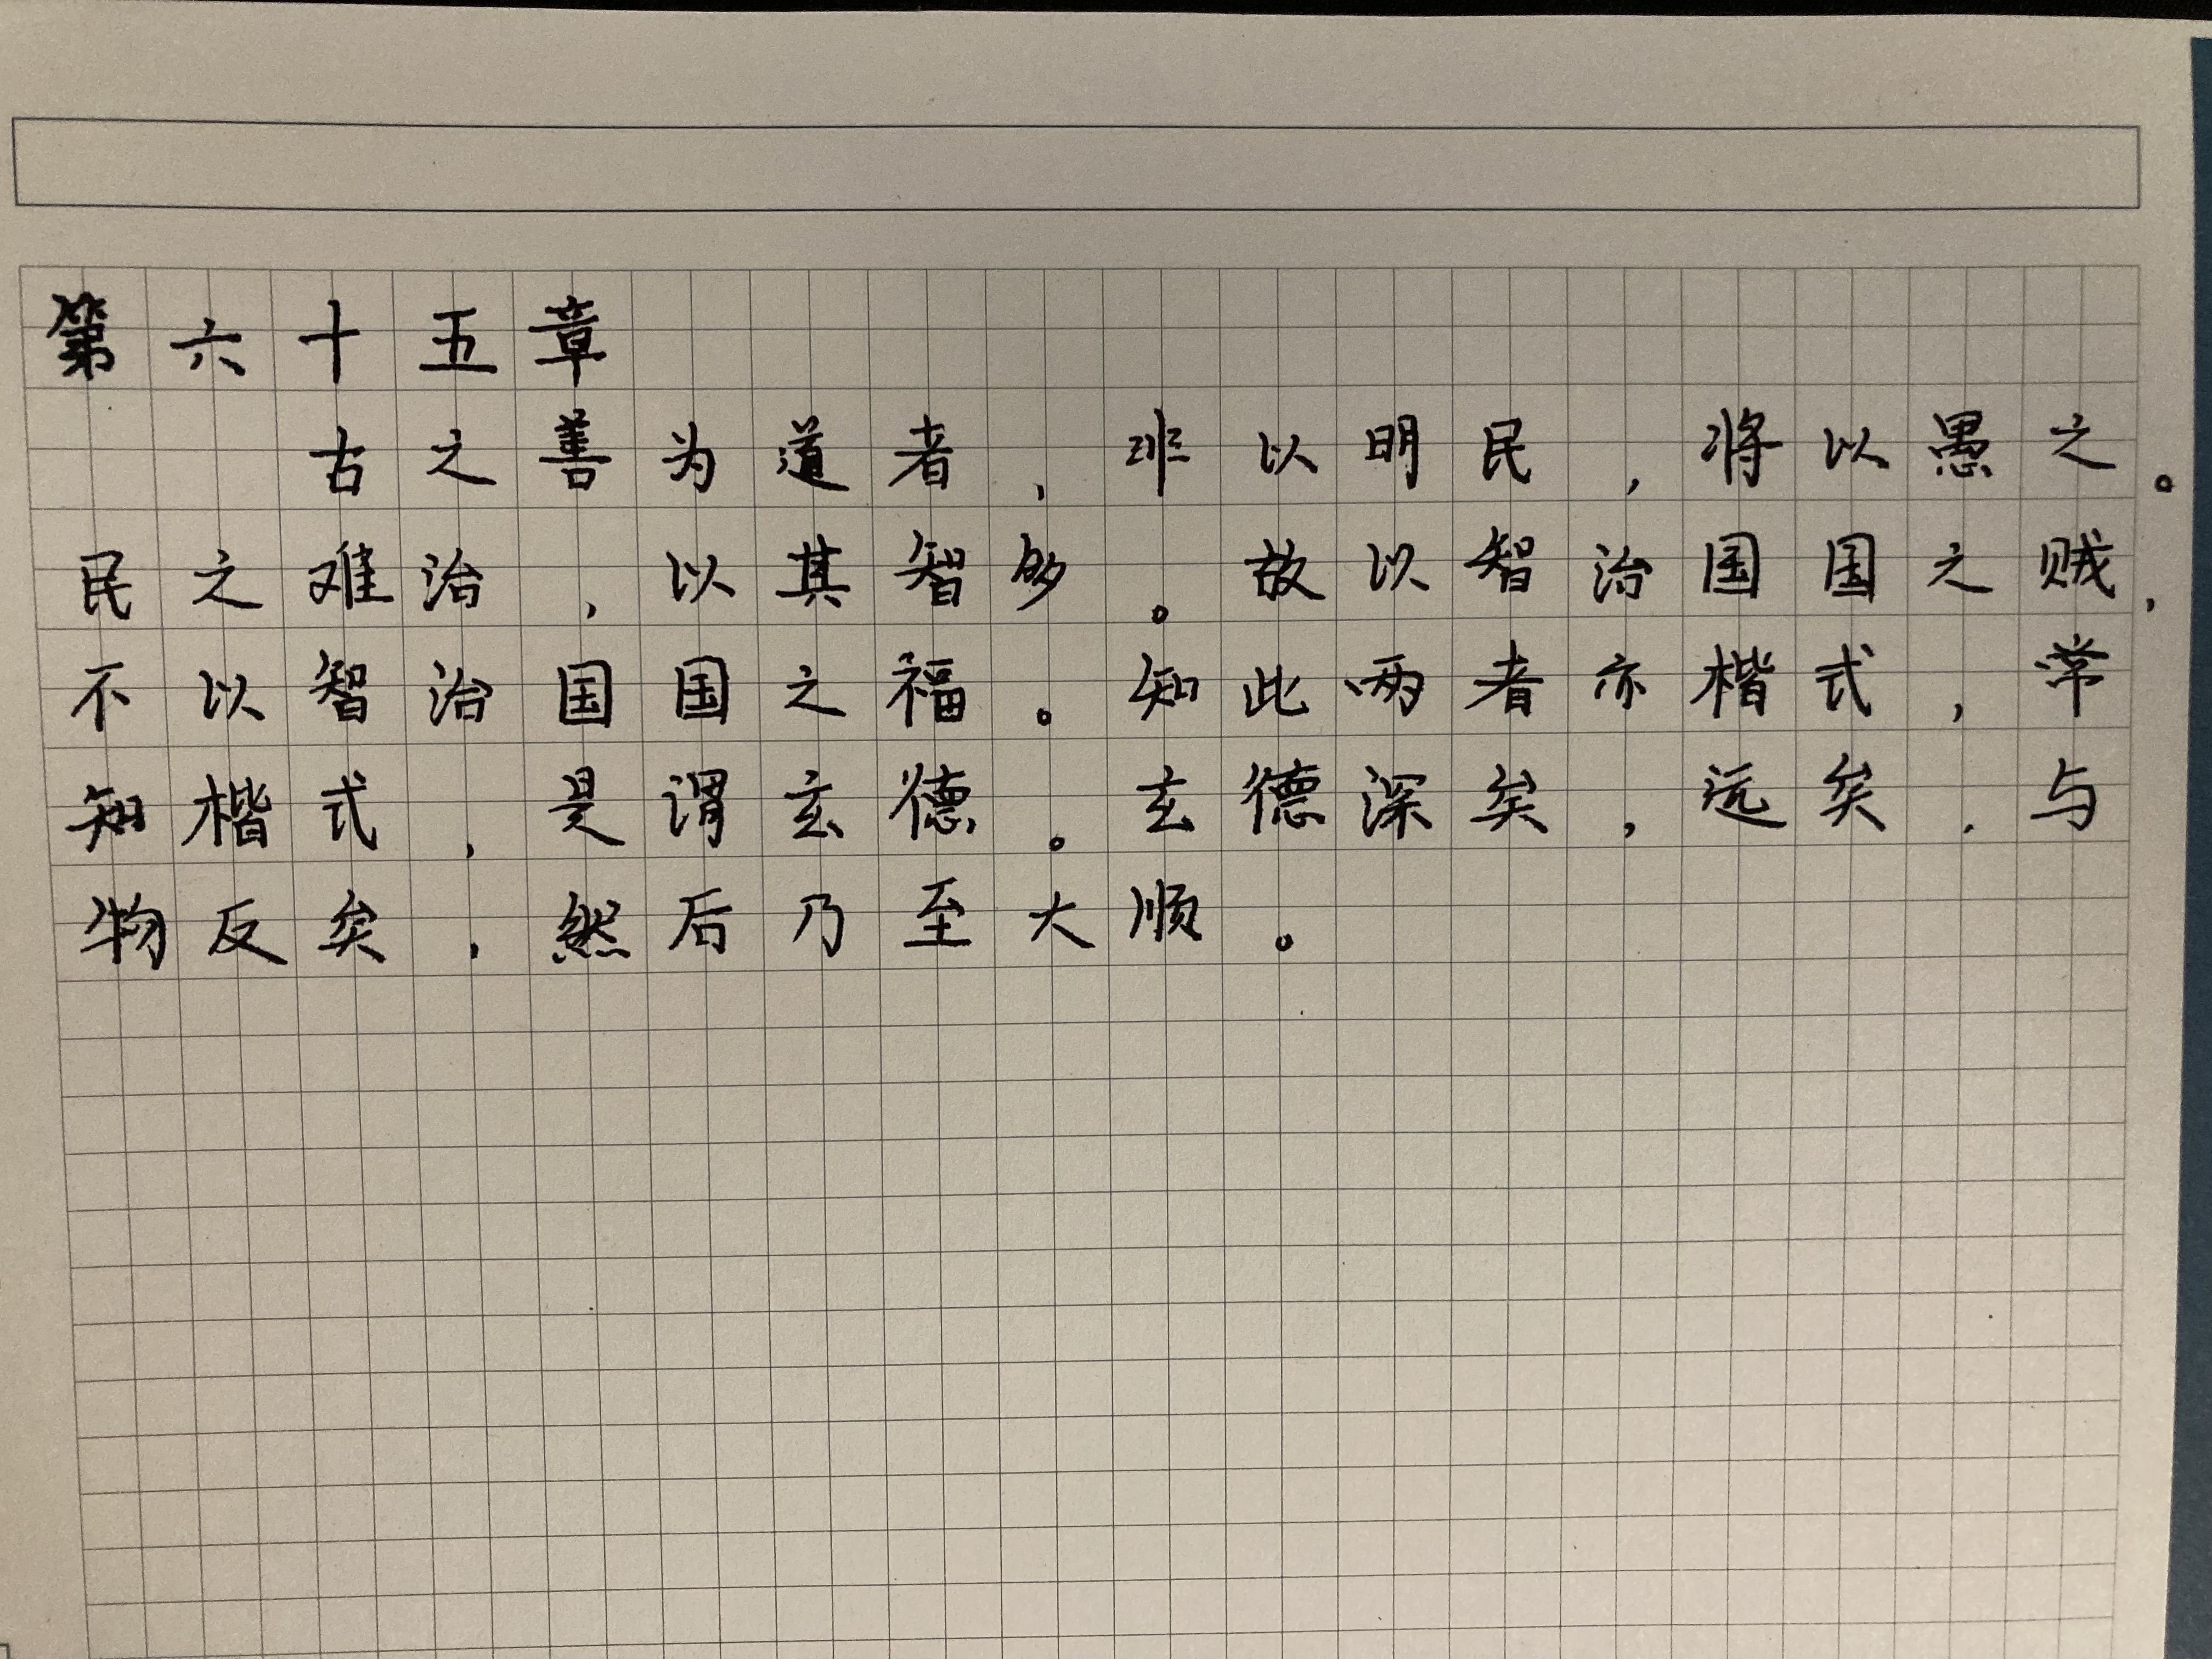 第六十五章
古之善为道者，非以明民，将以愚之。
民之难治，以其智多。故以智治国国之贼，
不以智治国国之福。知此两者亦楷式，常
知楷式，是谓玄德。玄德深矣，远矣，与
物反矣，然后乃至大顺。